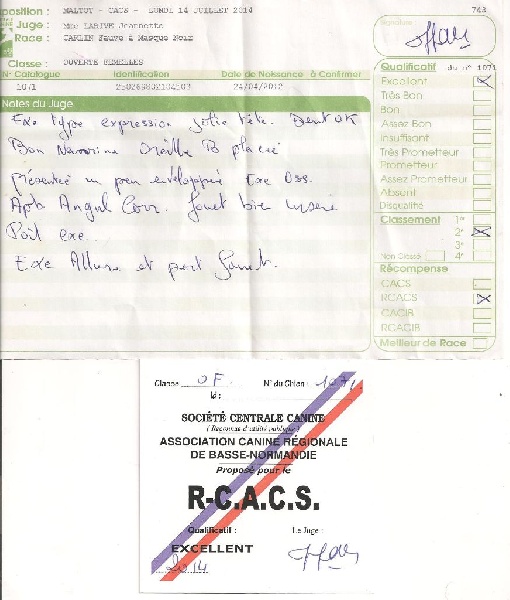 position : MALTOT - CACS - LUNDI 14 JUILLET 2014 743
Juge : Mme LARIVE Jeannette
Race : CARLIN Fauve à Masque Noir
Classe : OUVERTE FEMELLES
N° Catalogue Identification Date de Naissance à Confirmer
1071 24/04/2012
Signature :
Notes du Juge
Exc type expression jolie tête. Dent OK
Bon Oreille B placée
Présentée un peu enveloppée Exc Oss.
Apb Angul Corr. fouet bien inséré
Poil exc.
Exc Allure et port fouet.
Qualificatif du n° 1071
Excellent
Très Bon
Bon
Assez Bon
Insuffisant
Très Prometteur
Prometteur
Assez Prometteur
Absent
Disqualifié
Classement 1er
2e
3e
Non Classé 4e
Récompense
CACS
RCACS
CACIB
RCACIB
Meilleur de Race
Classe : OF. N° du Chien : 1071.
SOCIÉTÉ CENTRALE CANINE
(Reconnue d'utilité publique)
ASSOCIATION CANINE RÉGIONALE
DE BASSE-NORMANDIE
Proposé pour le
R-C.A.C.S.
Qualificatif : Le Juge :
EXCELLENT
2014